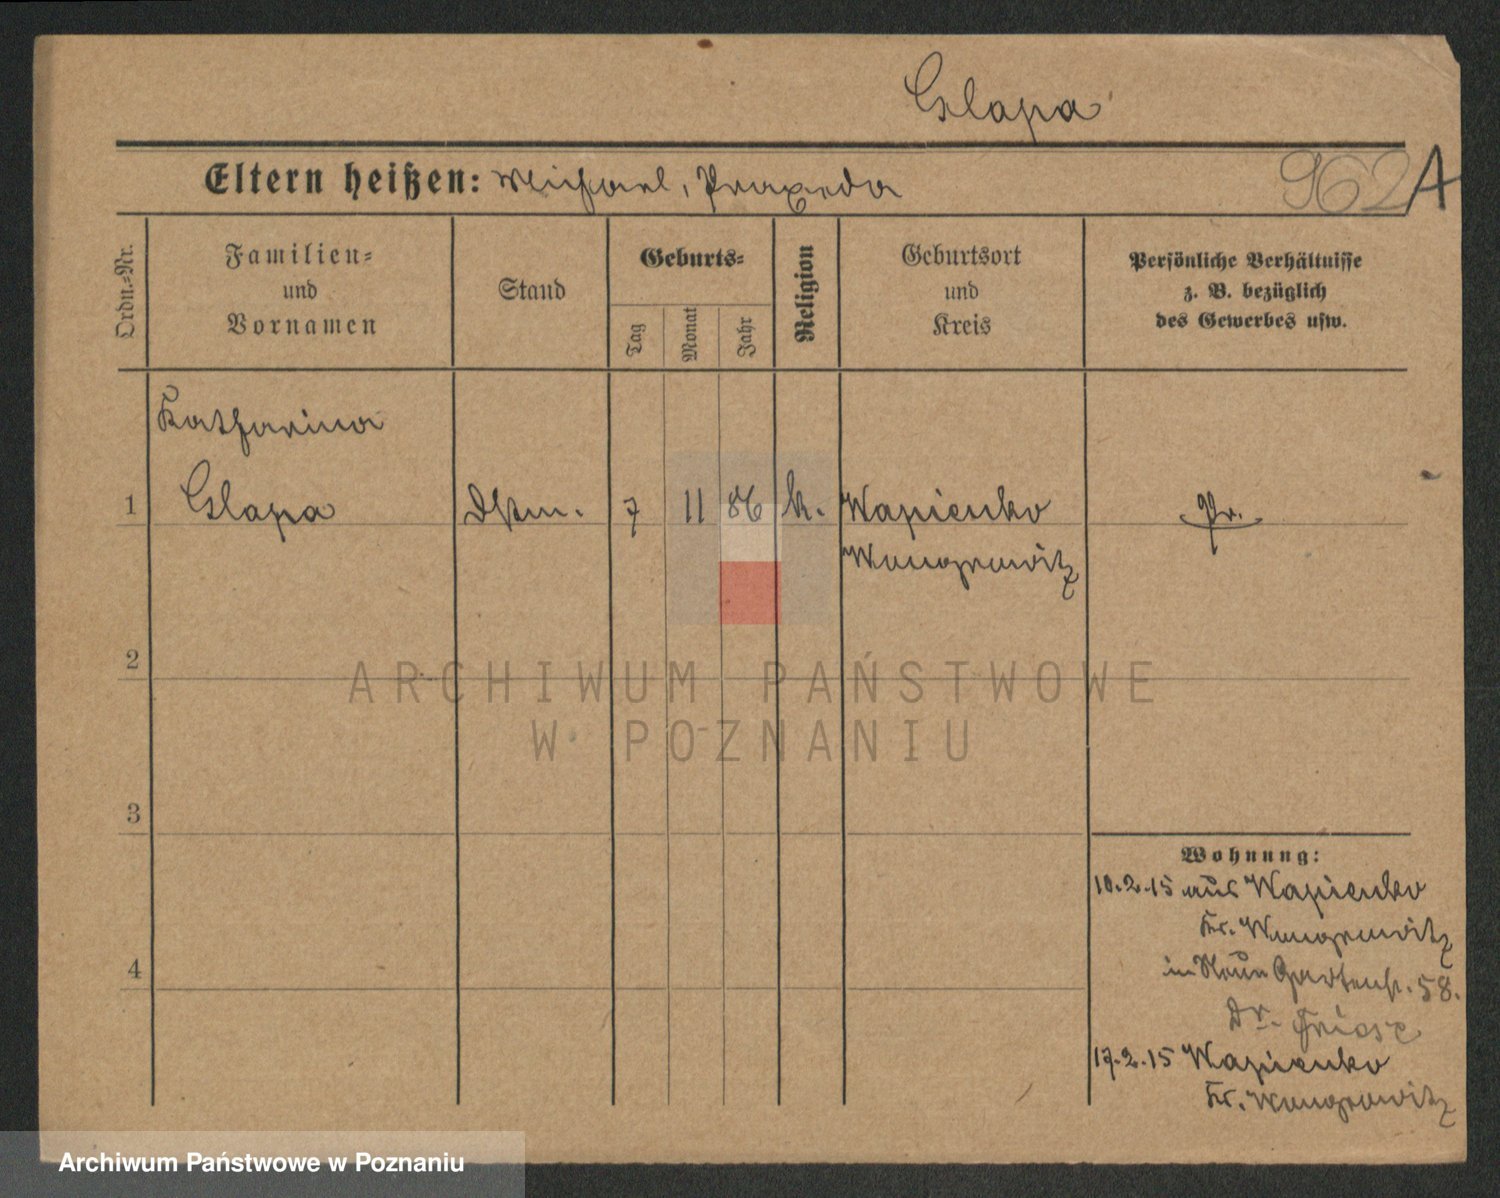 Glapa
Eltern heißen: Michael, Praxeda
962 A
Ordn.-Nr.
Familien-
und
Vornamen
Stand
Geburts-
Tag
Monat
Jahr
Religion
Geburtsort
und
Kreis
Persönliche Verhältnisse
z. B. bezüglich
des Gewerbes usw.
Katharina
1 Glapa Dstm. 7 11 86 k. Wapienko Pr.
Wongrowitz
2
ARCHIWUM PAŃSTWOWE
W POZNANIU
3
Wohnung:
10.2.15 aus Wapienko
Kr. Wongrowitz
4
in Neue Gartenstr. 58.
Dr.
17.2.15 Wapienko
Kr. Wongrowitz
Archiwum Państwowe w Poznaniu